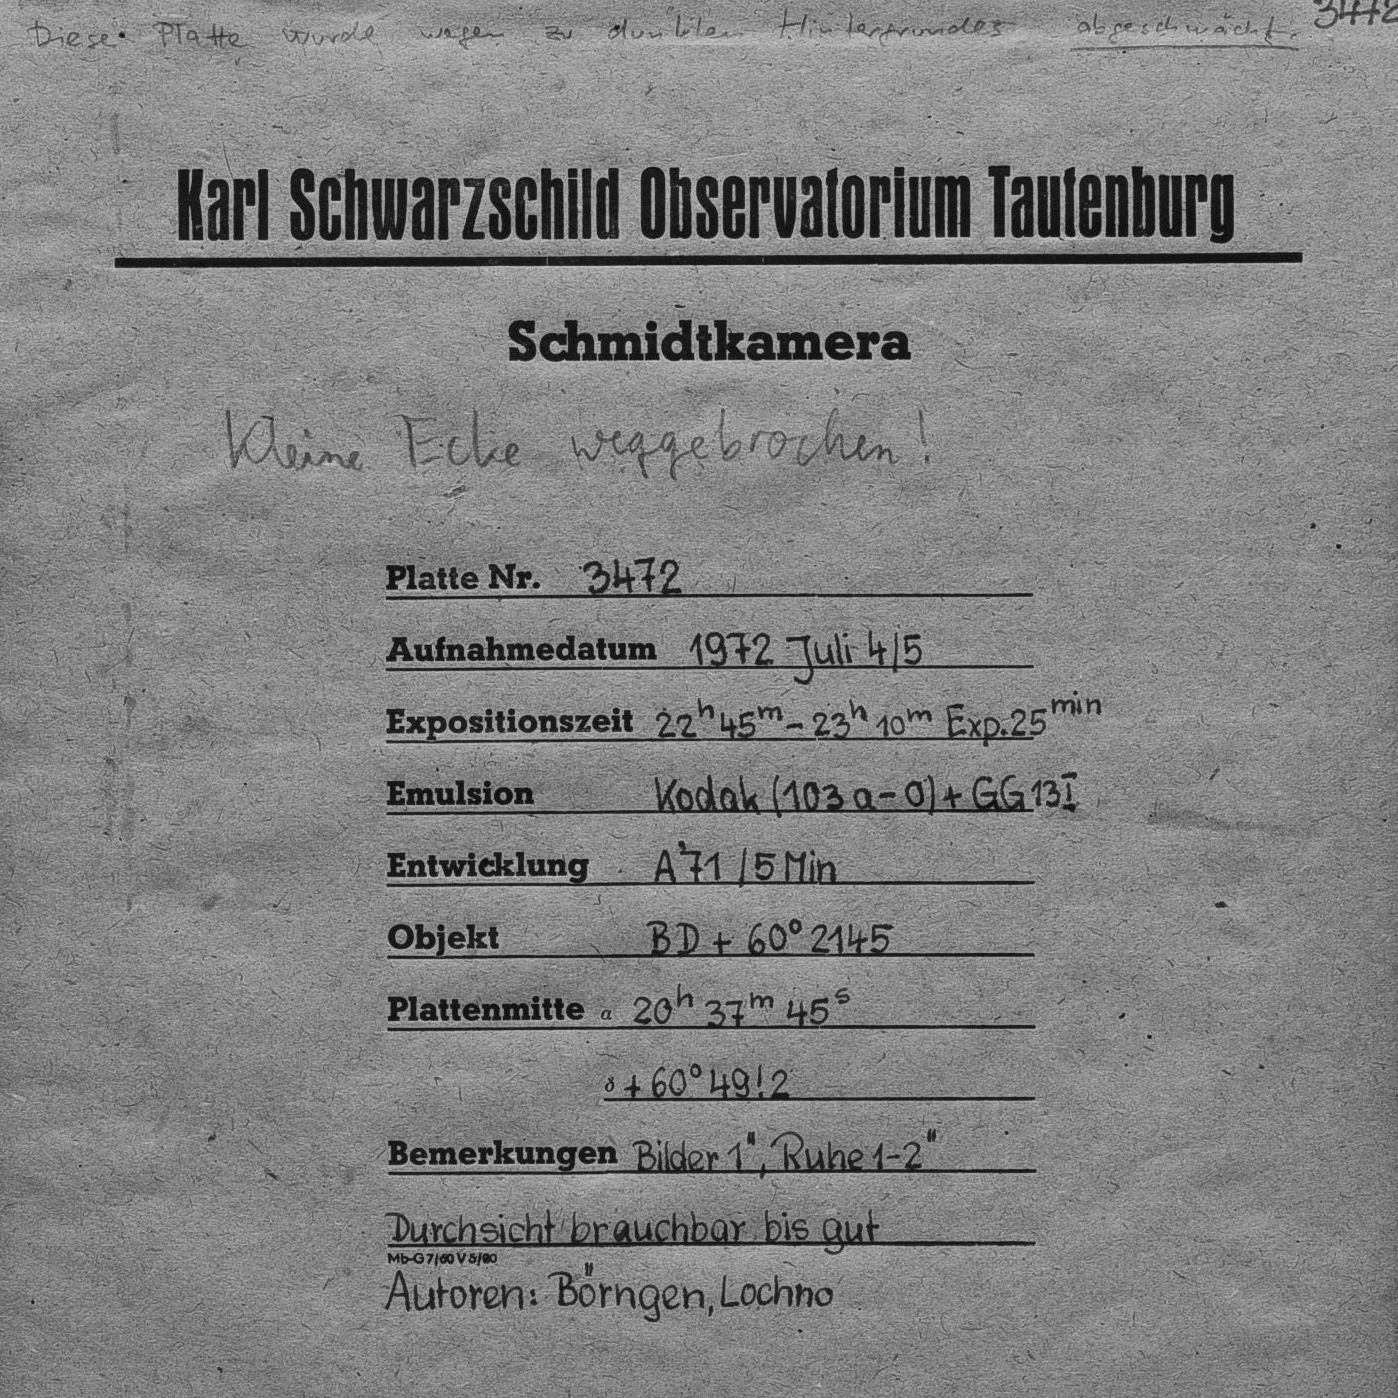 3472
Diese Platte wurde wegen zu dunklen Hintergrundes abgeschwächt.
Karl Schwarzschild Observatorium Tautenburg
Schmidtkamera
Kleine Ecke weggebrochen!
Platte Nr. 3472
Aufnahmedatum 1972 Juli 4/5
Expositionszeit 22h 45m – 23h 10m Exp. 25min
Emulsion Kodak (103 a – O) + GG 13
Entwicklung A'71 / 5 Min
Objekt BD + 60° 2145
Plattenmitte α 20h 37m 45s
δ + 60° 49!2
Bemerkungen Bilder 1", Ruhe 1–2"
Durchsicht brauchbar bis gut
Mb-G 7/60 V 5/
Autoren: Börngen, Lochno